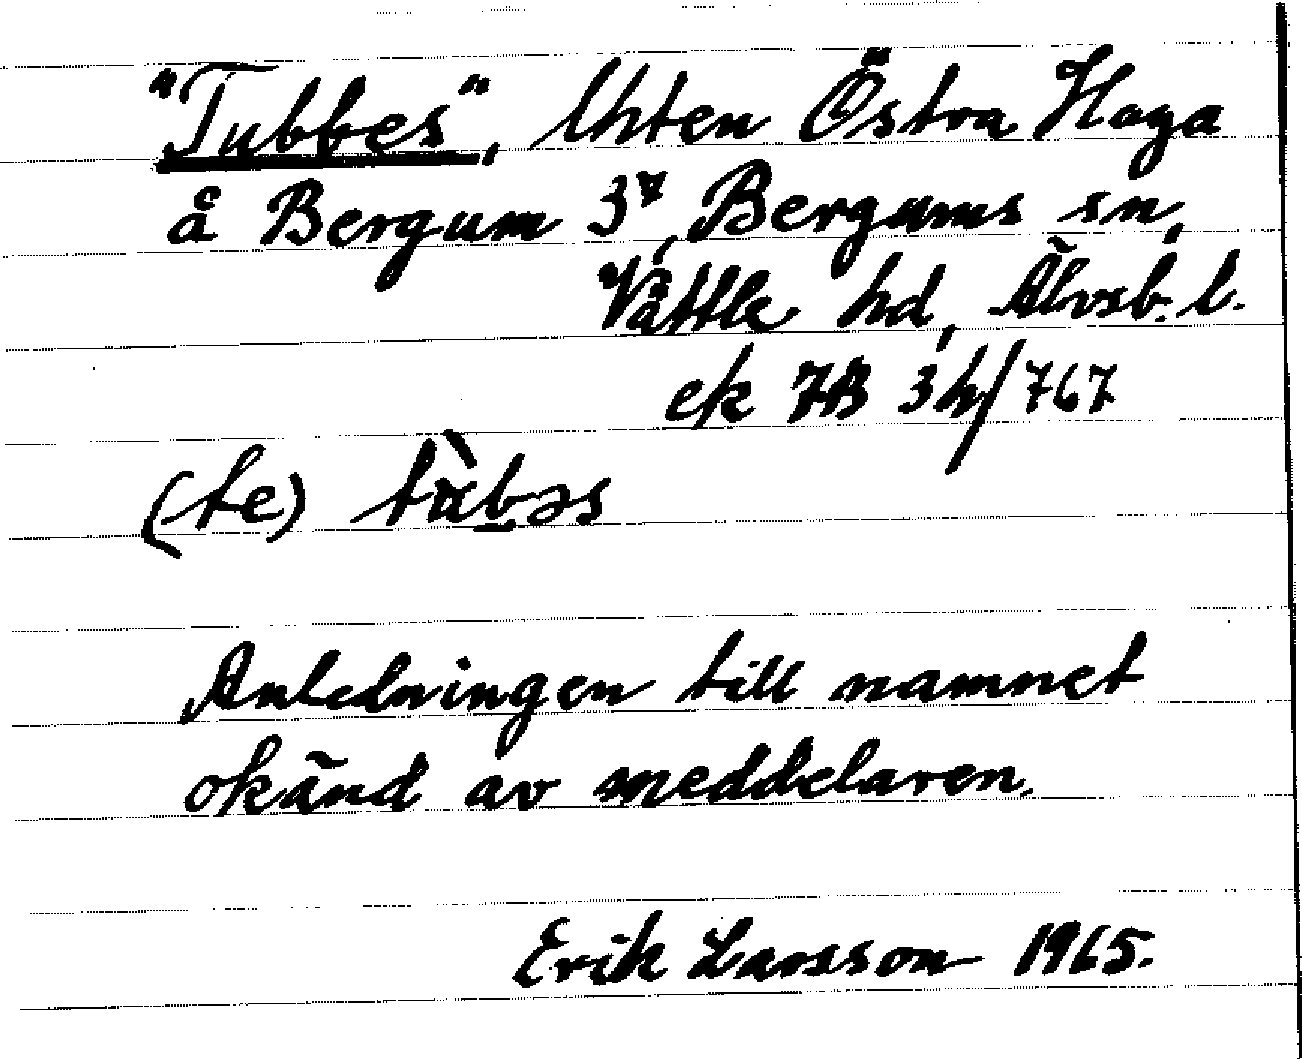 "Tubbes", lhten Östra Haga
å Bergum 3⁷, Bergums sn,
Vättle hd, Älvsb. l.
ek 7B 3h/767
(te) tùbəs
Anledningen till namnet
okänd av meddelaren.
Erik Larsson 1965.